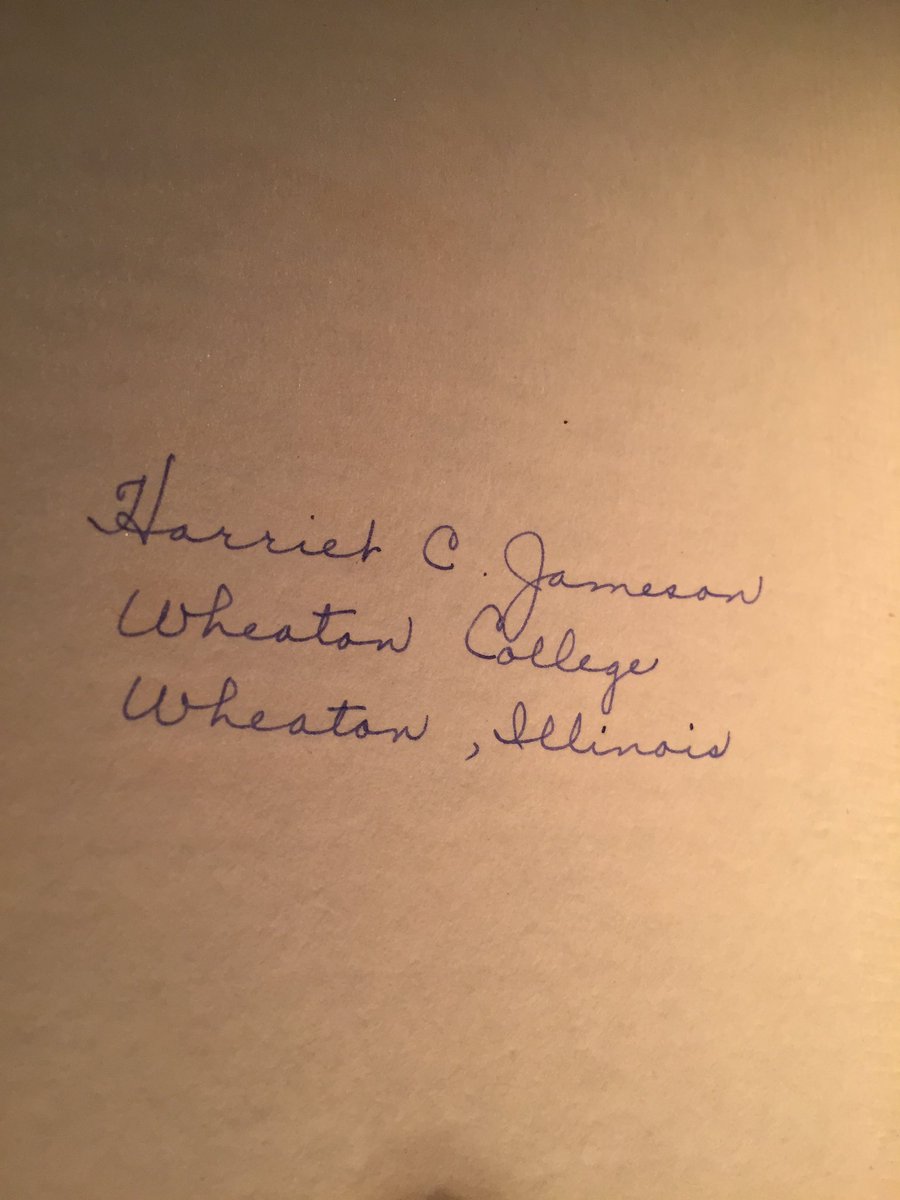 Harriet C. Jameson
Wheaton College
Wheaton, Illinois